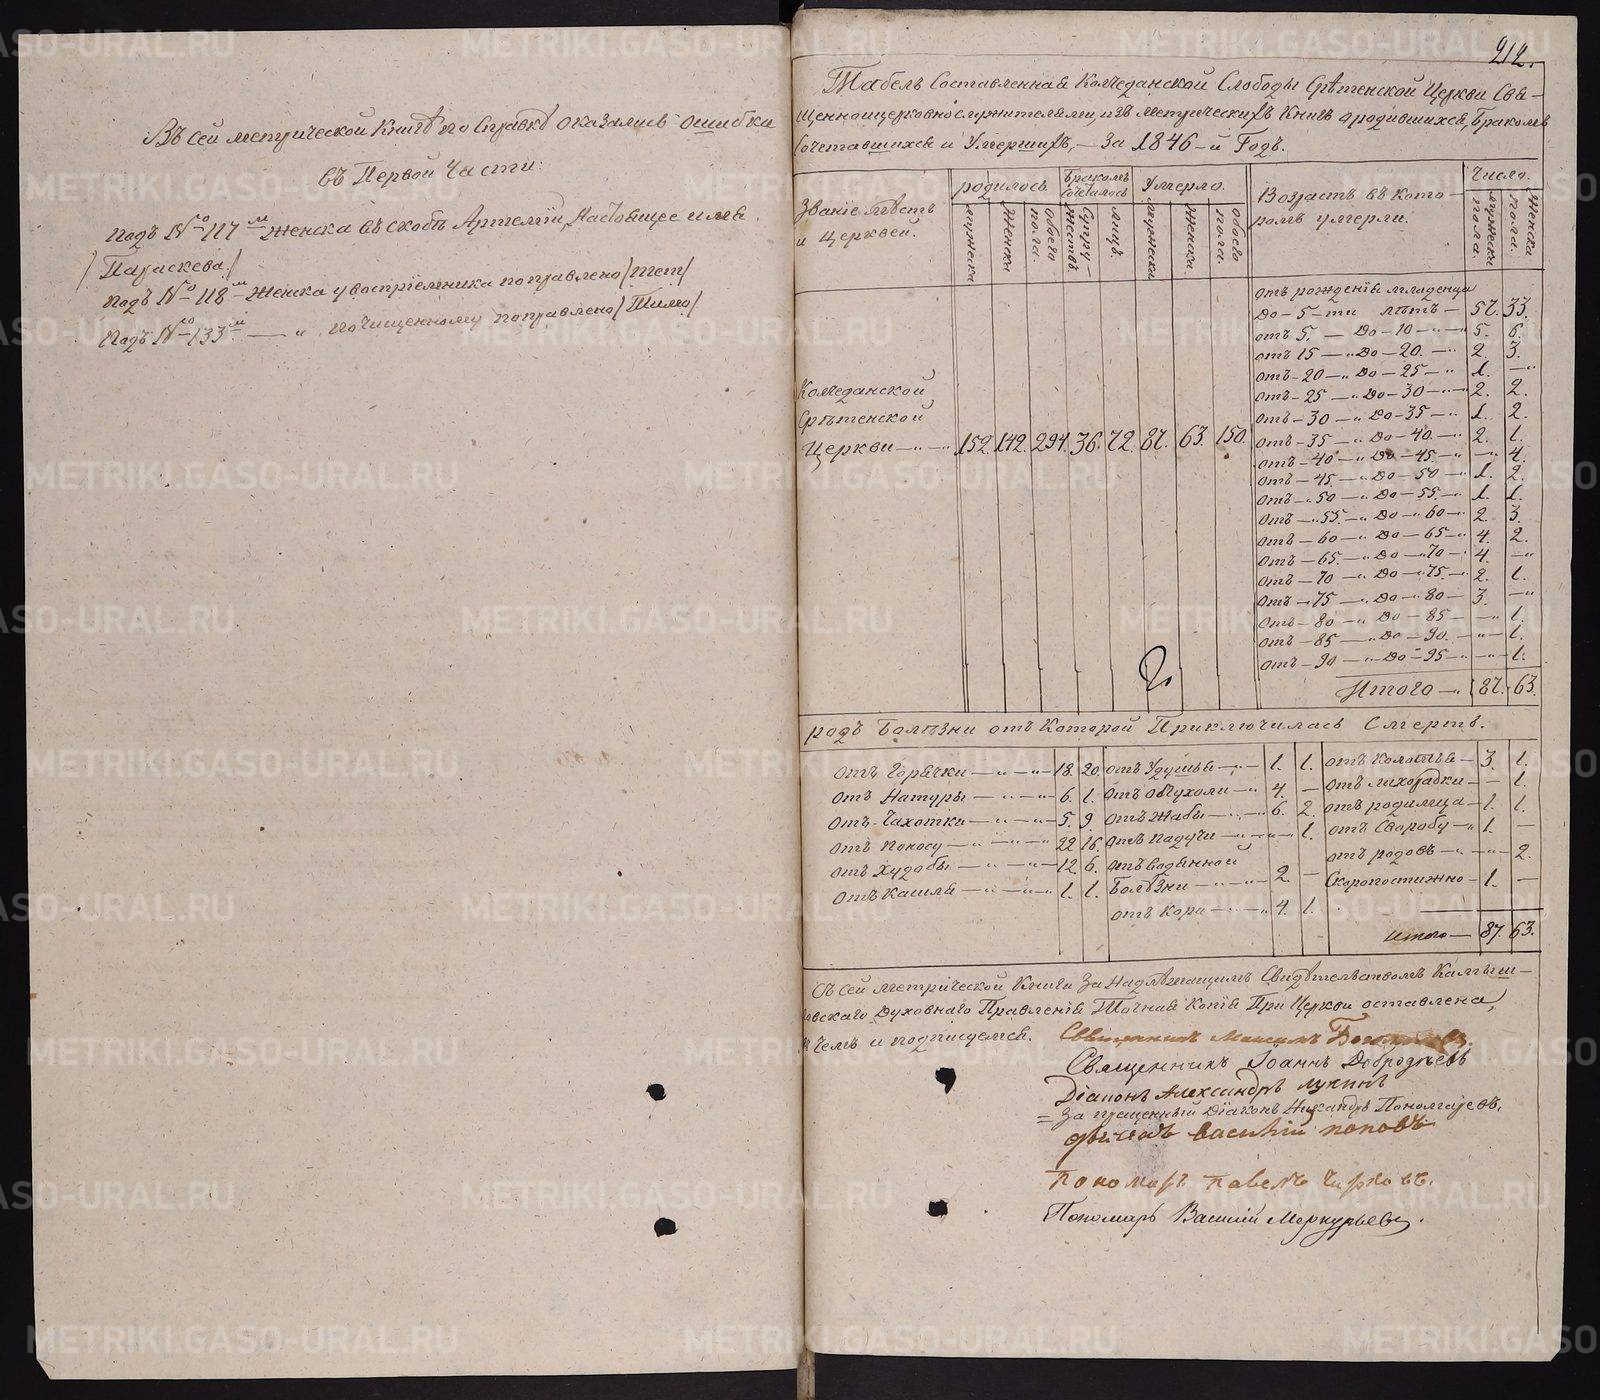 Въ сей метрической Книгѣ по Справкѣ оказались ошибки
въ Первой Части:
подъ №117м Женска въ скобѣ Артемiи, настоящее имя
/Параскева./
подъ №118м Женска у воспрiемника поправлено /тет/
Подъ №133м — „ по чищенному поправлено /Тимо/
212.
Табель Составленная Колчеданской Слободы Срѣтенской Церкви Свя-
щенноцерковнослужителями, изъ метрическихъ Книгъ о родившихся, бракомъ
Сочетавшихся и Умершихъ, — За 1846-й Годъ.
Званiе мѣстъ
и Церквей.
родилось.
мужеска
Женска
обоего пола.
бракомъ Сочталось
Супру-жествъ
лицъ.
Умерло.
мужеска
Женска
обоего пола
Возрастъ въ кото-
ромъ умерли.
Число.
мужеска пола.
Женска пола.
Колчеданской
Срѣтенской
Церкви —„—„ 152. 142. 294. 36. 72. 87. 63. 150.
отъ рожденiя младенца
до — 5-ти лѣтъ — 57. 33.
отъ 5. — до — 10 — „ — 5. 6.
отъ 15 — „ до — 20. — „ 2. 3.
отъ — 20 — „ до — 25 — „ 1. — „
отъ — 25 — „ до — 30 — „ 2. 2.
отъ — 30 — „ до — 35 — „ 1. 2.
отъ — 35 — „ до — 40. — „ 2. 1.
отъ — 40 — „ до — 45. — „ — „ 4.
отъ — 45. — „ до — 50 — „ 1. 2.
отъ — „ 50 — „ до — 55. — „ 1. 1.
отъ — „ 55. — „ до — „ 60 — „ 2. 3.
отъ — 60 — „ до — 65 — „ 4. 2.
отъ — 65. — „ до — „ 70 — „ 4. — „
отъ — 70 — „ до — „ 75. — „ 2. 1.
отъ — „ 75 — „ до — „ 80 — 3. — „
отъ — 80 — „ до — 85 — — „ 1.
отъ — 85 — „ до — 90. — „ — 1.
отъ — 90 — „ до — 95 — „ — „ — 1.
Итого — „ 87. 63.
родъ Болѣзни отъ Которой Приключилась Смерть.
отъ Горячки — „ — „ — 18. 20. отъ Удушья — „ — 1. 1. отъ Колотья — 3. 1.
отъ Натуры — „ — „ — 6. 1. отъ опухоли — „ 4. — отъ лихорадки — — 1.
отъ Чахотки — „ — „ — 5. 9. отъ Жабы — „ — 6. 2. отъ родимца — 1. 1.
отъ Поносу — „ — „ — 22 16. отъ Падучи — „ — „ — 1. отъ Своробу — „ 1. —
отъ Худобы — „ — „ — 12. 6. отъ водянной отъ родовъ — „ — „ — 2.
отъ Кашля — „ — „ — „ 1. 1. Болѣзни — „ — „ — 2. — Скоропостижно — 1. —
отъ Кори — „ — „ 4. 1.
Итого — 87. 63.
Съ сей метрической Книги За Надлежащимъ Свидѣтельствомъ Камыш-
ловскаго Духовнаго Правленiя Точная Копiя При Церкви оставлена,
въ Чемъ и подписуемся. Священникъ Максимъ
Священникъ Iоаннъ Добродѣевъ
Дiаконъ Александръ Лукинъ
= За прещенный Дiаконъ Никандръ Пономаревъ.
Дьячекъ василiй поповъ
пономарь павелъ Чирковъ.
Пономарь Василiй Меркурьевъ.